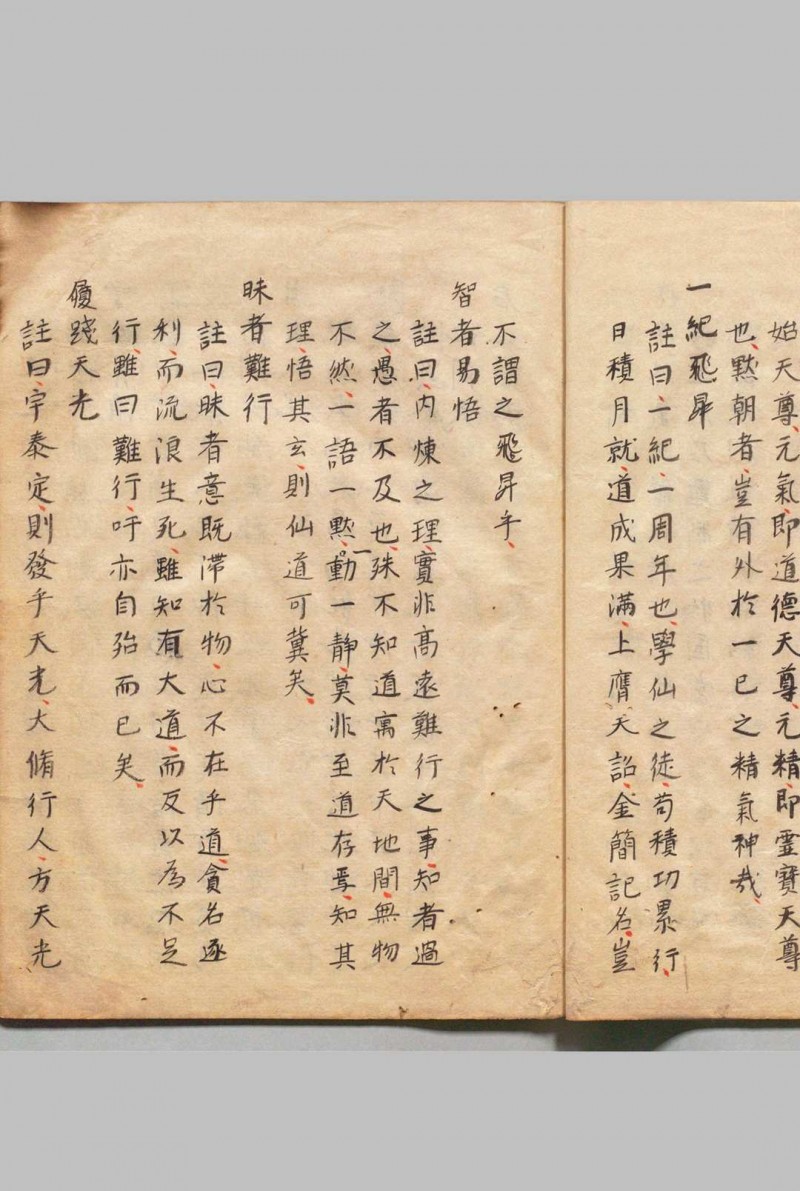 始天尊、元氣、即道德天尊、元精、即靈寶天尊
也、黙朝者、豈有外於一已之精氣神哉、
一紀飛昇
註曰、一紀、一周年也、學仙之徒、苟積功累行、
日積月就、道成果滿、上膺天詔、金簡記名、豈
不謂之飛昇乎、
智者易悟
註曰、内煉之理、實非高遠難行之事、知者過
之、愚者不及也、殊不知道寓於天地間、無物
不然、一語一黙、一動一静、莫非至道存焉、知其
理、悟其玄、則仙道可冀矣、
昧者難行
註曰、昧者意既滯於物、心不在乎道、貪名逐
利、而流浪生死、雖知有大道、而反以為不足
行、雖曰難行、吁亦自殆而已矣、
履踐天光
註曰、宇泰定、則發乎天光、大脩行人、方天光